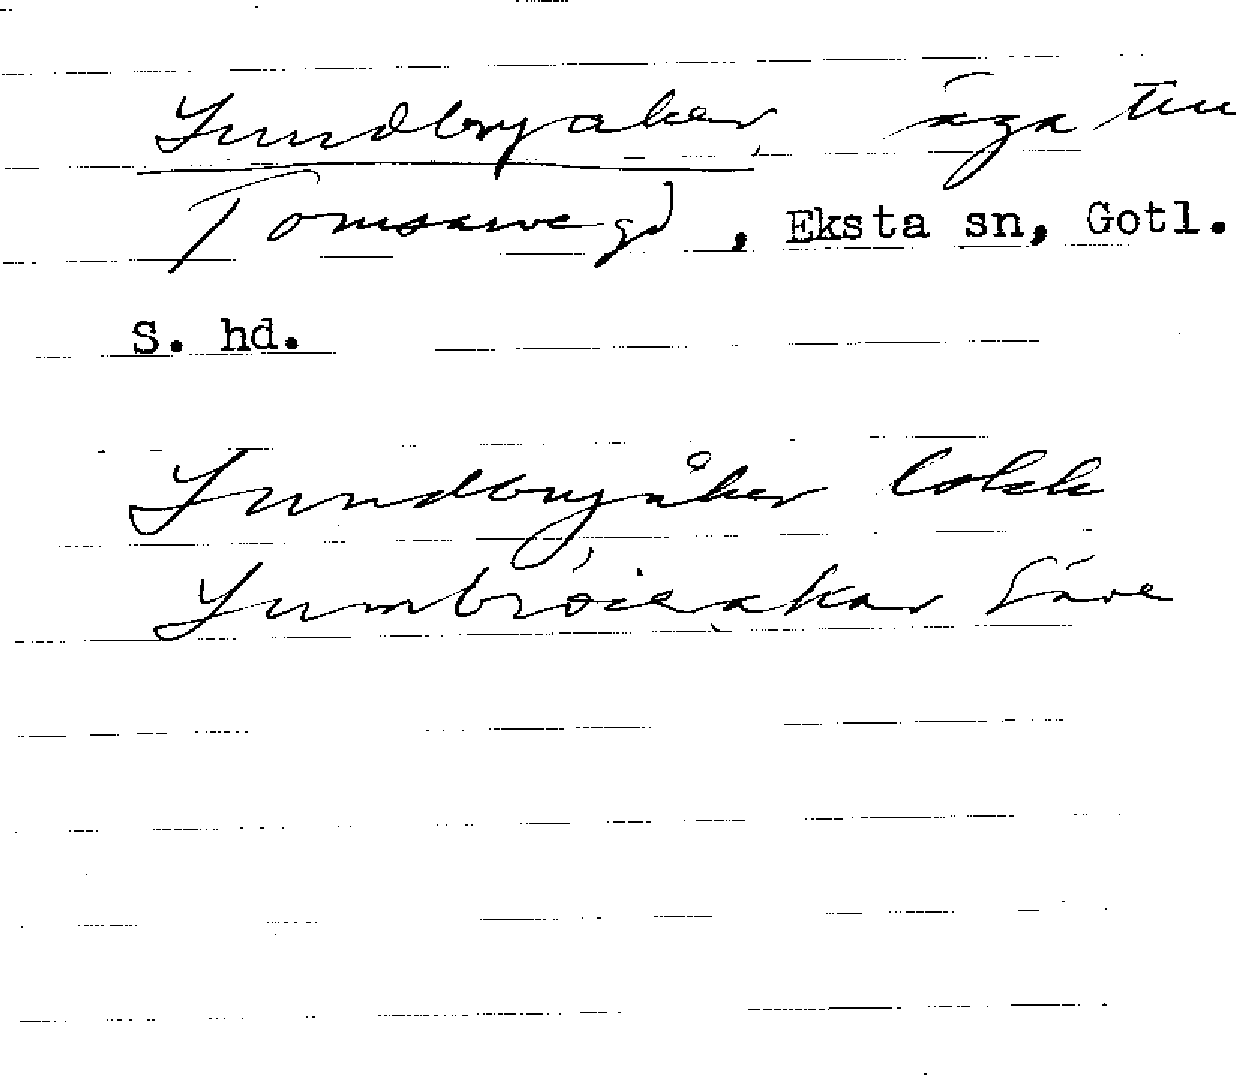 Lundbyaker äga till
Tomsarve gd, Eksta sn, Gotl.
S. hd.
Lundbyåker lokk
Lumbröiakar Säve